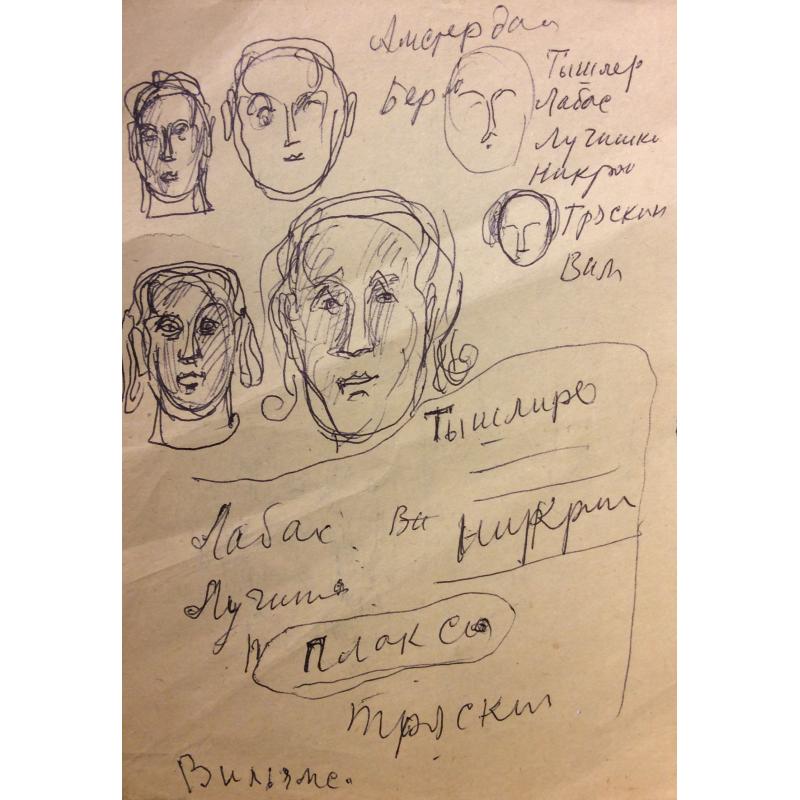 Амстердам
Тышлер
Лабас
Лучишк
Никри
Тряскин
Вил
Тышлиро
Лабак Ви Никрит
Лучиш
Плаксы
Тряскин
Вильямс.